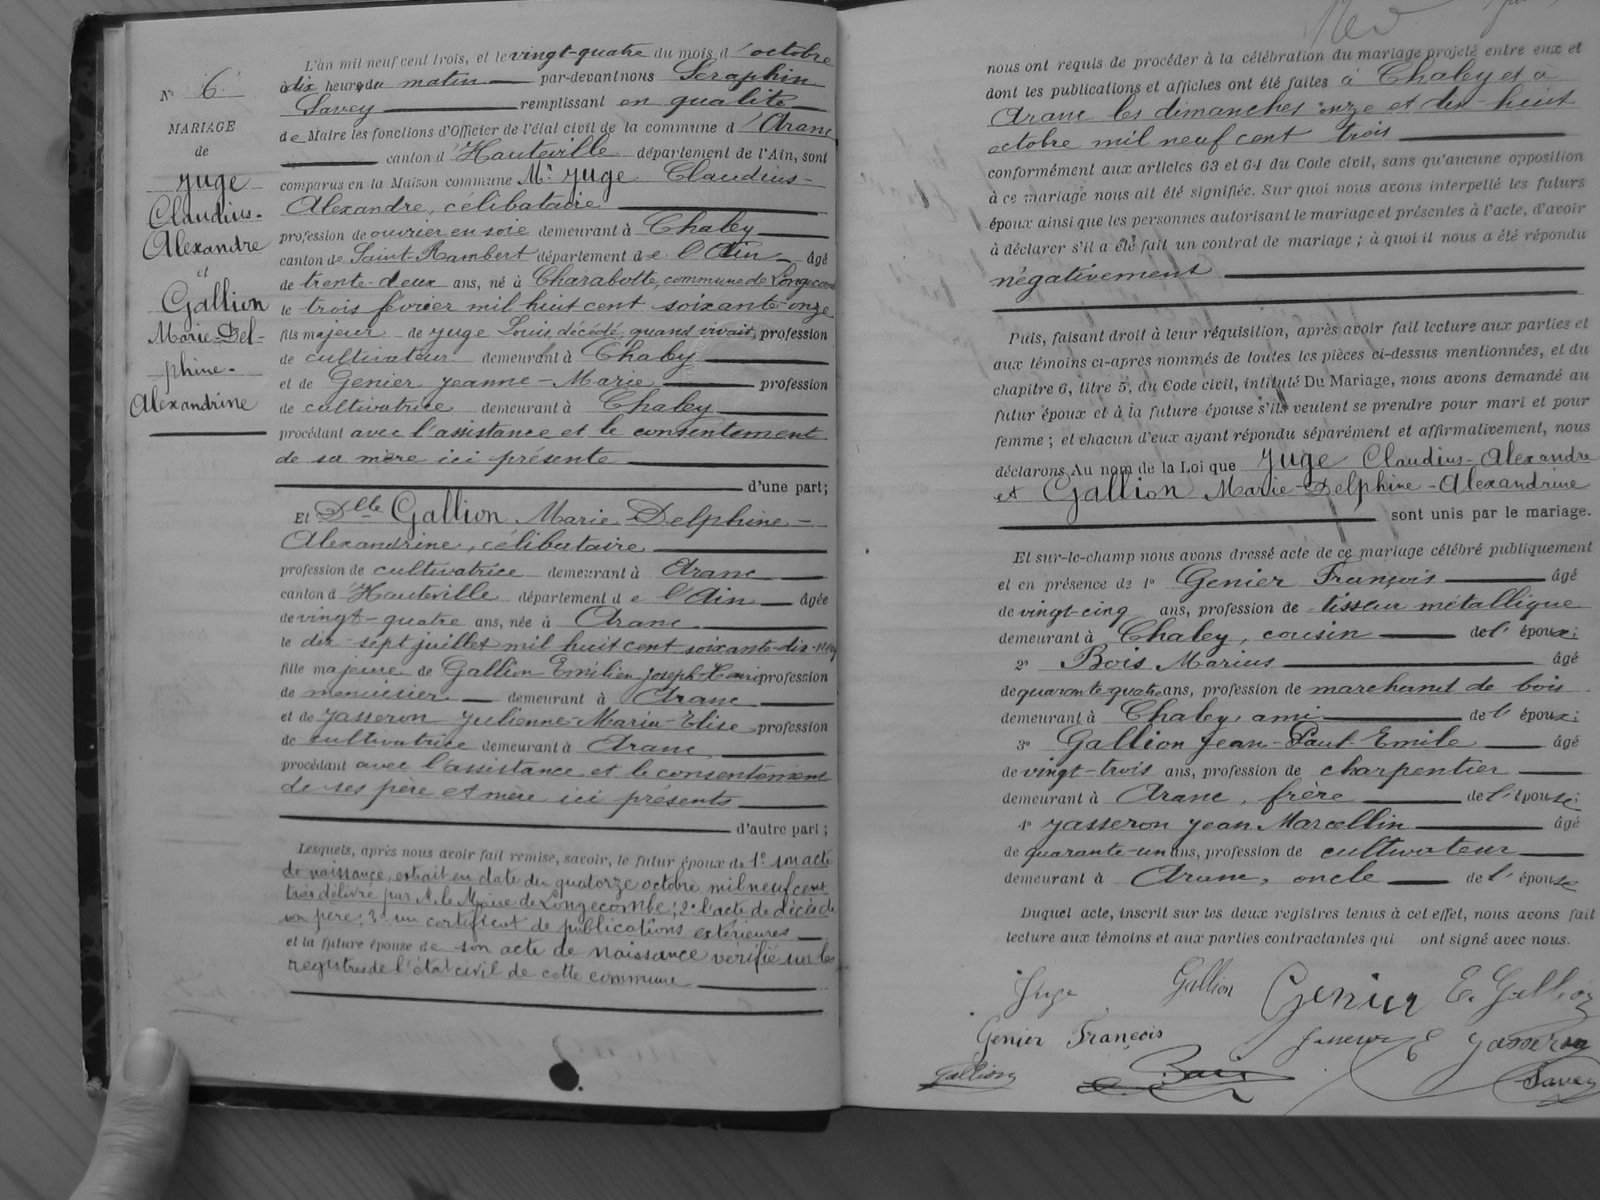 N° 6
MARIAGE
de
Juge
Claudius-
Alexandre
et
Gallion
Marie-Del-
phine-
Alexandrine
L'an mil neuf cent trois, et le vingt-quatre du mois d'octobre
à dix heures du matin par-devant nous Seraphin
Savey remplissant en qualité
de Maire les fonctions d'Officier de l'état civil de la commune d'Aranc
canton d'Hauteville département de l'Ain, sont
comparus en la Maison commune Mr Juge Claudius-
Alexandre, célibataire
profession de ouvrier en soie demeurant à Chaley
canton de Saint-Rambert département de l'Ain âgé
de trente-deux ans, né à Charabotte, commune de Longecombe
le trois février mil huit cent soixante-onze
fils majeur de Juge Louis décédé, quand vivait, profession
de cultivateur demeurant à Chaley
et de Genier Jeanne-Marie profession
de cultivatrice demeurant à Chaley
procédant avec l'assistance et le consentement
de sa mère ici présente
d'une part;
Et Dlle Gallion Marie-Delphine-
Alexandrine, célibataire
profession de cultivatrice demeurant à Aranc
canton d'Hauteville département de l'Ain âgée
de vingt-quatre ans, née à Aranc
le dix-sept juillet mil huit cent soixante-dix-neuf
fille majeure de Gallion Emilien Joseph-Henri profession
de menuisier demeurant à Aranc
et de Jasseron Julienne-Maria-Elise profession
de cultivatrice demeurant à Aranc
procédant avec l'assistance et le consentement
de ses père et mère ici présents
d'autre part;
Lesquels, après nous avoir fait remise, savoir, le futur époux de 1° son acte
de naissance, extrait en date du quatorze octobre mil neuf cent
trois délivré par M. le Maire de Longecombe; 2° l'acte de décès de
son père; 3° un certificat de publications extérieures
et la future épouse de son acte de naissance vérifié sur les
registres de l'état civil de cette commune
nous ont requis de procéder à la célébration du mariage projeté entre eux et
dont les publications et affiches ont été faites à Chaley et à
Aranc les dimanches onze et dix-huit
octobre mil neuf cent trois
conformément aux articles 63 et 64 du Code civil, sans qu'aucune opposition
à ce mariage nous ait été signifiée. Sur quoi nous avons interpellé les futurs
époux ainsi que les personnes autorisant le mariage et présentes à l'acte, d'avoir
à déclarer s'il a été fait un contrat de mariage; à quoi il nous a été répondu
négativement
Puis, faisant droit à leur réquisition, après avoir fait lecture aux parties et
aux témoins ci-après nommés de toutes les pièces ci-dessus mentionnées, et du
chapitre 6, titre 5, du Code civil, intitulé Du Mariage, nous avons demandé au
futur époux et à la future épouse s'ils veulent se prendre pour mari et pour
femme; et chacun d'eux ayant répondu séparément et affirmativement, nous
déclarons Au nom de la Loi que Juge Claudius-Alexandre
et Gallion Marie-Delphine-Alexandrine
sont unis par le mariage.
Et sur-le-champ nous avons dressé acte de ce mariage célébré publiquement
et en présence de 1° Genier François âgé
de vingt-cinq ans, profession de tisseur métallique
demeurant à Chaley, cousin de l'époux;
2° Bois Marius âgé
de quarante-quatre ans, profession de marchand de bois
demeurant à Chaley, ami de l'époux;
3° Gallion Jean-Paul-Emile âgé
de vingt-trois ans, profession de charpentier
demeurant à Aranc, frère de l'épouse;
4° Jasseron Jean Marcellin âgé
de quarante-un ans, profession de cultivateur
demeurant à Aranc, oncle de l'épouse
Duquel acte, inscrit sur les deux registres tenus à cet effet, nous avons fait
lecture aux témoins et aux parties contractantes qui ont signé avec nous.
Juge Gallion Genier E. Gallion
Genier François Jasseron E Jasseron
Gallion Bois Savey